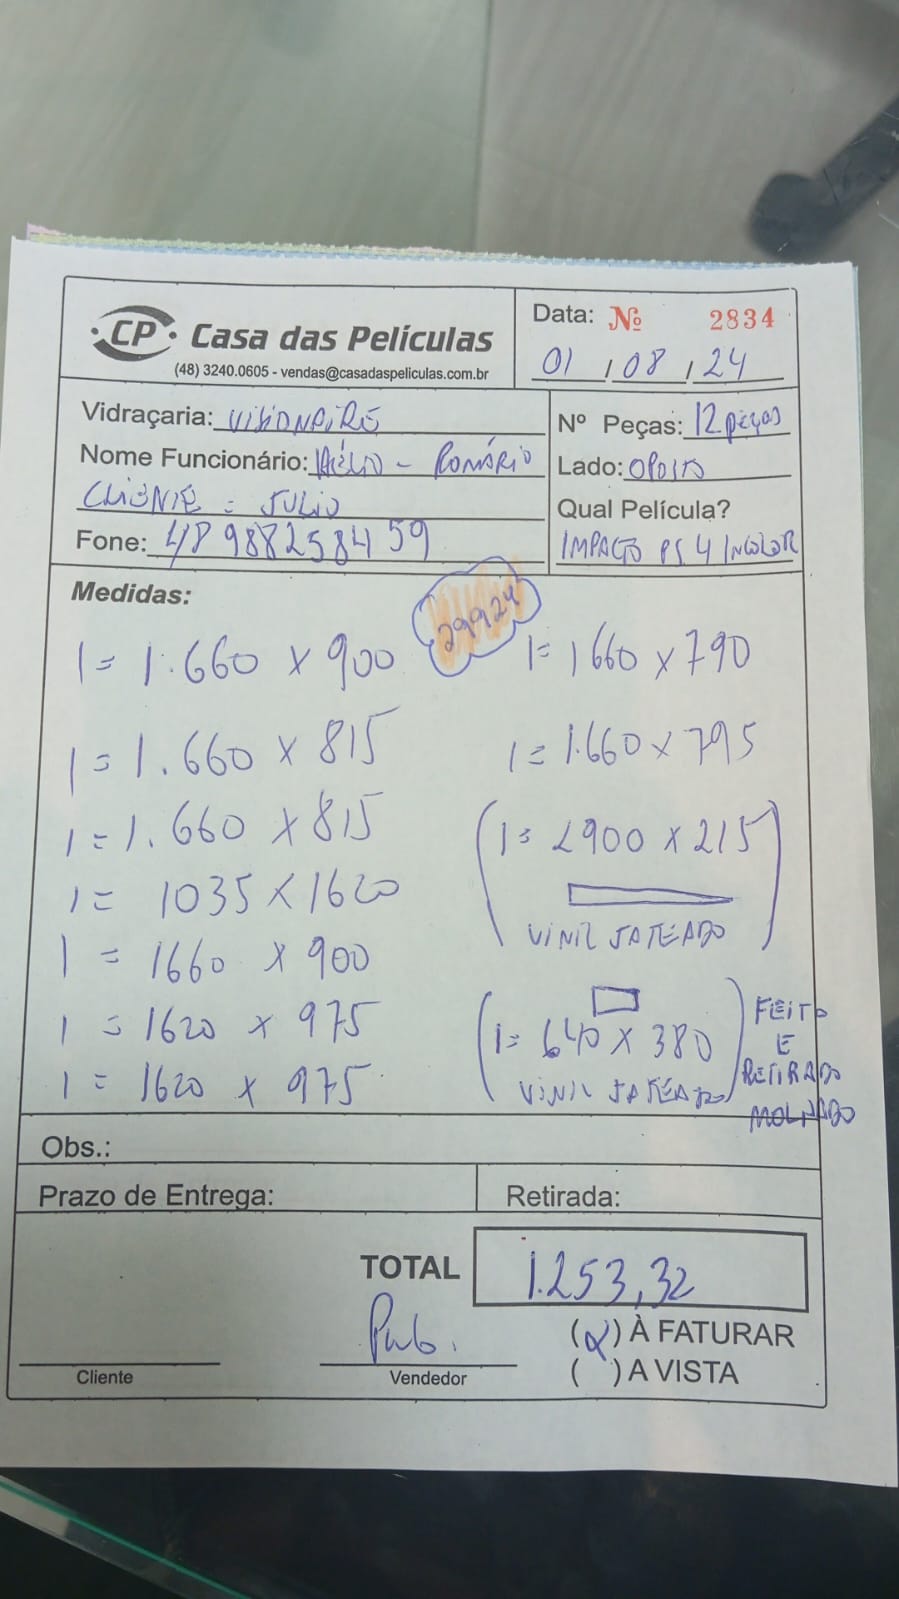 CP Casa das Películas
(48) 3240.0605 - vendas@casadaspeliculas.com.br
Data: Nº 2834
01 / 08 / 24
Vidraçaria: VISIONAIRE
Nome Funcionário: HÉLIO - ROMÁRIO
CLIENTE = JULIO
Fone: 48 988258459
Nº Peças: 12 peças
Lado: OPOSTO
Qual Película?
IMPACTO PS 4 INCOLOR
Medidas:
29924
1 = 1.660 x 900
1 = 1.660 x 815
1 = 1.660 x 815
1 = 1035 x 1620
1 = 1660 x 900
1 = 1620 x 975
1 = 1620 x 975
1 = 1660 x 790
1 = 1.660 x 795
(1 = 2900 x 215)
VINIL JATEADO
(1 = 640 x 380)
VINIL JATEADO
FEITO
E
RETIRADO
MOLHADO
Obs.:
Prazo de Entrega:
Retirada:
TOTAL 1.253,32
(X) À FATURAR
( ) A VISTA
Cliente
Vendedor